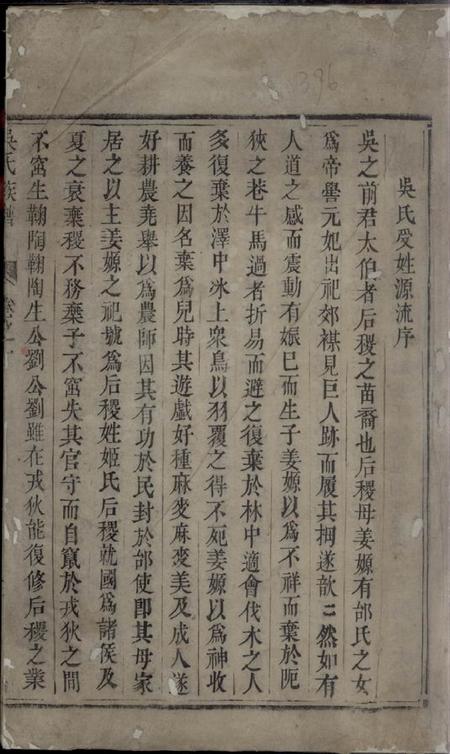 396
吳氏受姓源流序
吳之前君太伯者后稷之苗裔也后稷母姜嫄有邰氏之女
爲帝嚳元妃出祀郊禖見巨人跡而履其拇遂歆〻然如有
人道之感而震動有娠巳而生子姜嫄以爲不祥而棄於阨
狹之巷牛馬過者折易而避之復棄於林中適會伐木之人
多復棄於澤中氷上衆鳥以羽覆之得不死姜嫄以爲神收
而養之因名棄爲兒時其遊戲好種麻麥麻麥美及成人遂
好耕農堯舉以爲農師因其有功於民封於邰使卽其母家
居之以主姜嫄之祀號爲后稷姓姬氏后稷就國爲諸侯及
夏之衰棄稷不務棄子不窋失其官守而自竄於戎狄之間
不窋生鞠陶鞠陶生公劉公劉雖在戎狄能復修后稷之業
吳氏族譜